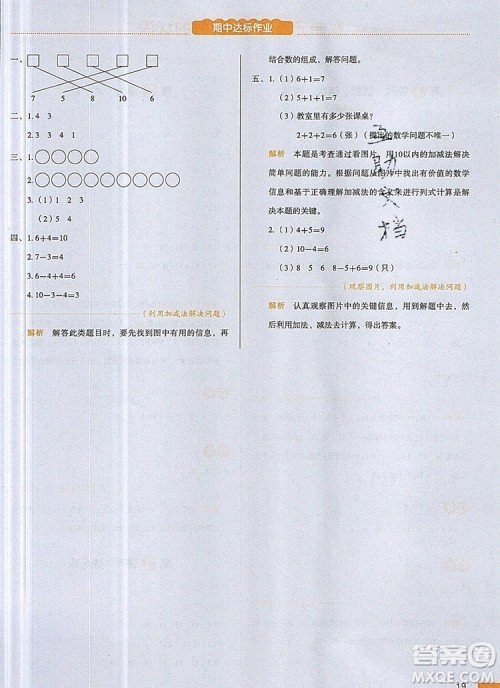 期中达标作业
一、
7 5 8 10 6
二、1.4 3
2.4
三、1.
2.
3.(1)1 2 3
(2)5 4
四、1.6+4=10
2.7-3=4
3.6-4+4=6
4.10-3-4=3
(利用加减法解决问题)
解析 解答此类题目时,要先找到图中有用的信息,再
结合数的组成,解答问题。
五、1.(1)6+1=7
(2)5+1+1=7
(3)教室里有多少张课桌?
2+2+2=6(张)(提出的数学问题不唯一)
解析 本题是考查通过看图片,用10以内的加减法解决
简单问题的能力。根据从图片中找出有价值的数学
信息及基于正确理解加减法的含义来进行列式计算是解
决本题的关键。
2.(1)4+5=9
(2)10-4=6
(3)8 5 6 8-5+6=9(只)
(观察图片,利用加减法解决问题)
解析 认真观察图片中的关键信息,用到解题中去,然
后利用加法、减法去计算,得出答案。
互助文档
19
答案圈
MXQE.COM